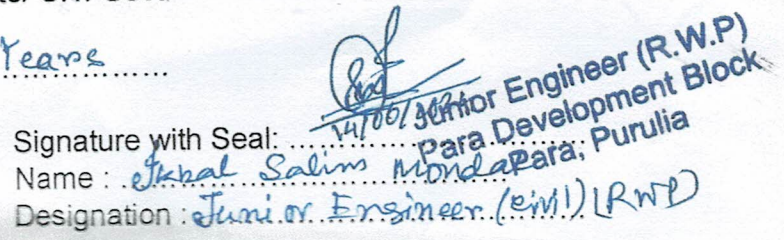 Years
Junior Engineer (R.W.P)
Para Development Block
Para, Purulia
Signature with Seal:
Name : Ikbal Salim Mondal
Designation : Junior Engineer (Civil) (RWP)